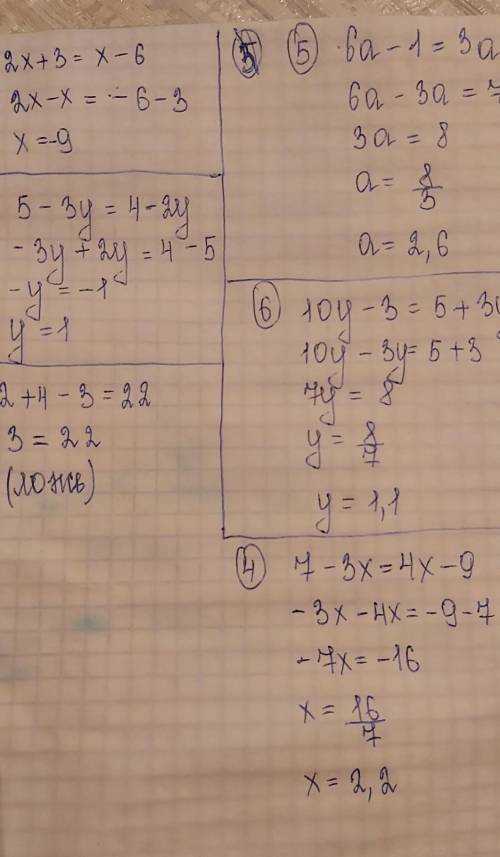 2x+3 = x-6
2x-x = -6-3
x=-9
5-3y = 4-2y
-3y+2y = 4-5
-y = -1
y = 1
2+4-3=22
3=22
(ложь)
5 6a-1=3a
6a-3a=7
3a=8
a=8/3
a=2,6
6 10y-3=5+3y
10y-3y=5+3
7y=8
y=8/7
y=1,1
4 7-3x=4x-9
-3x-4x=-9-7
-7x=-16
x=16/7
x=2,2